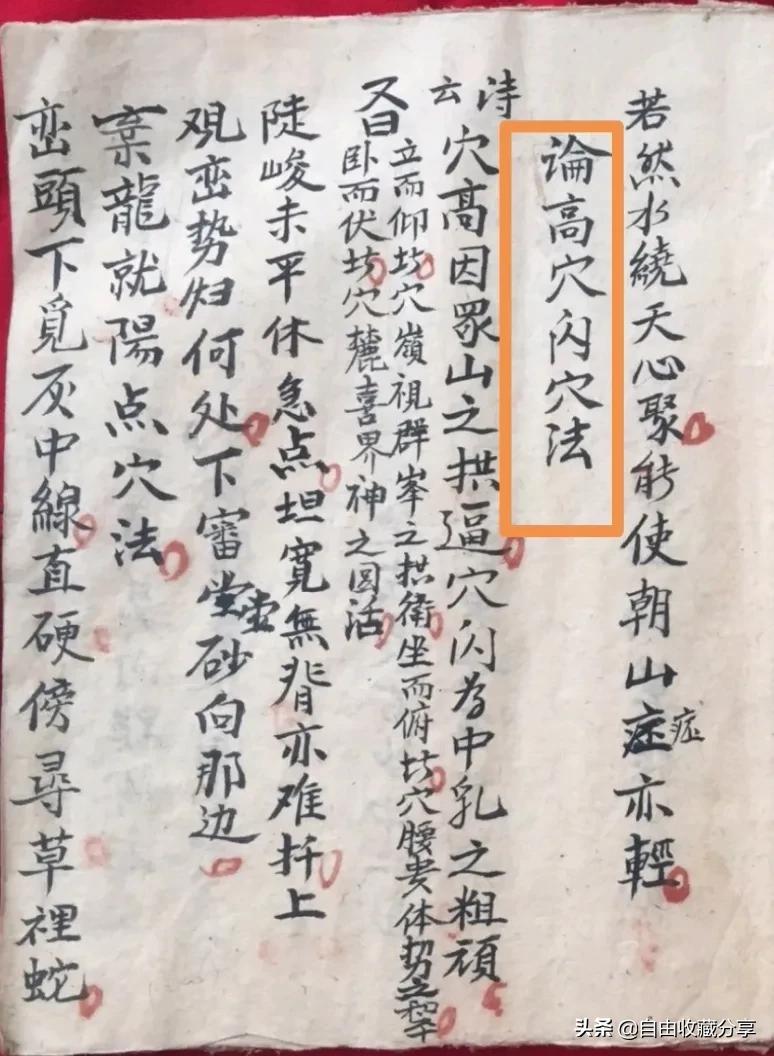 若然水繞天心聚能使朝山症症亦輕
論高穴闪穴法
诗云
穴高因眾山之拱逼穴闪為中乳之粗頑
又曰
立而仰坟穴嶺視群峯之拱衛坐而俯坟穴腰贵体势之
卧而伏坟穴麓喜界神之圆活
陡峻未平休急点坦寬無背亦难扦上
观峦势归何处下審堂砂向那边
棄龍就陽点穴法
峦頭下覓灰中線直硬傍尋草裡蛇
头条 @自由收藏分享